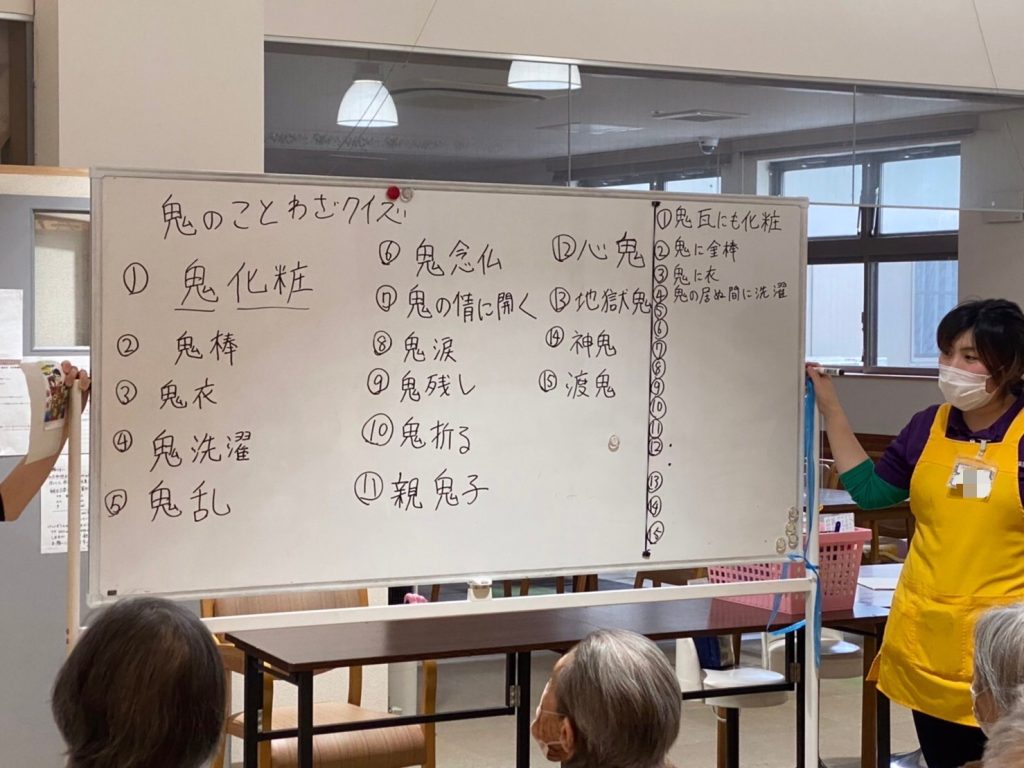 鬼のことわざクイズ
① 鬼化粧
② 鬼棒
③ 鬼衣
④ 鬼洗濯
⑤ 鬼乱
⑥ 鬼念仏
⑦ 鬼の情に開く
⑧ 鬼涙
⑨ 鬼残し
⑩ 鬼折る
⑪ 親鬼子
⑫ 心鬼
⑬ 地獄鬼
⑭ 神鬼
⑮ 渡鬼
① 鬼瓦にも化粧
② 鬼に金棒
③ 鬼に衣
④ 鬼の居ぬ間に洗濯
⑤
⑥
⑦
⑧
⑨
⑩
⑪
⑫
⑬
⑭
⑮